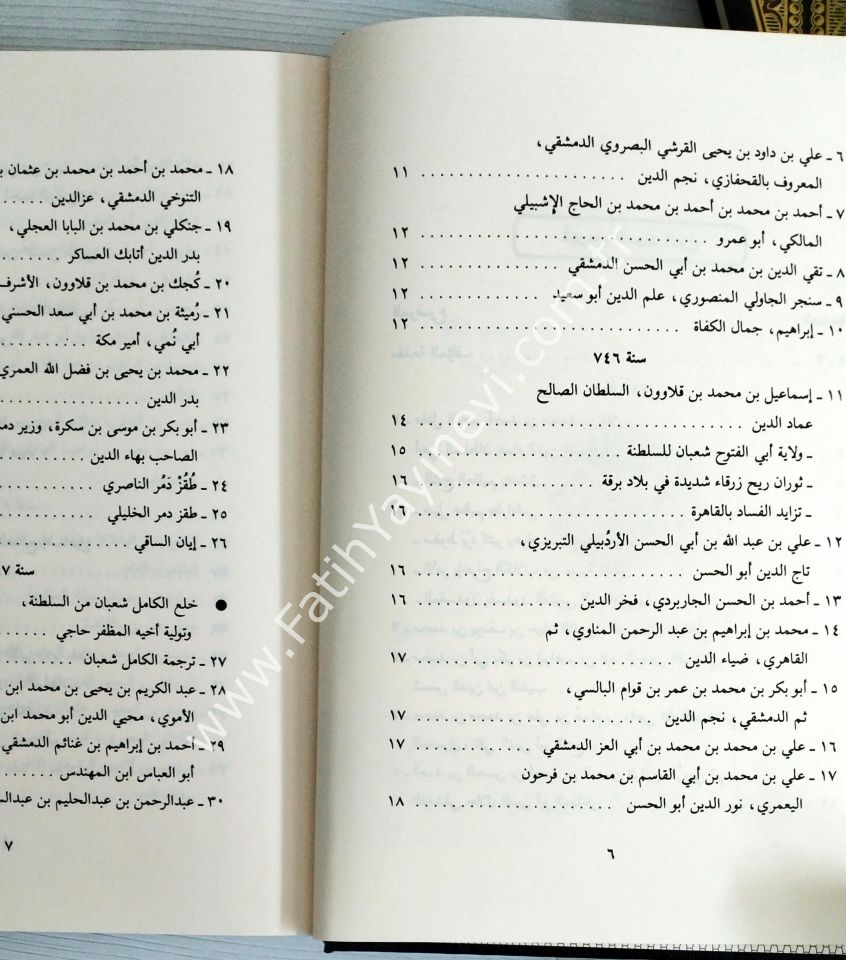 ٦ ـ علي بن داود بن يحيى القرشي البصروي الدمشقي،
المعروف بالقحفازي، نجم الدين . . . . . . . . . . . . . . . . . . . . . . ١١
٧ ـ أحمد بن محمد بن أحمد بن محمد بن الحاج الإشبيلي
المالكي، أبو عمرو . . . . . . . . . . . . . . . . . . . . . . . . . . . . . . ١٢
٨ ـ تقي الدين بن محمد بن أبي الحسن الدمشقي . . . . . . . . . . . . . . ١٢
٩ ـ سنجر الجاولي المنصوري، علم الدين أبو سعيد . . . . . . . . . . . . ١٢
١٠ ـ إبراهيم، جمال الكفاة . . . . . . . . . . . . . . . . . . . . . . . . . . ١٢
سنة ٧٤٦
١١ ـ إسماعيل بن محمد بن قلاوون، السلطان الصالح
عماد الدين . . . . . . . . . . . . . . . . . . . . . . . . . . . . . . . . . ١٤
ـ ولاية أبي الفتوح شعبان للسلطنة . . . . . . . . . . . . . . . . . . . . . ١٥
ـ ثوران ريح زرقاء شديدة في بلاد برقة . . . . . . . . . . . . . . . . . . ١٦
ـ تزايد الفساد بالقاهرة . . . . . . . . . . . . . . . . . . . . . . . . . . . ١٦
١٢ ـ علي بن عبد الله بن أبي الحسن الأردُبيلي التبريزي،
تاج الدين أبو الحسن . . . . . . . . . . . . . . . . . . . . . . . . . . . ١٦
١٣ ـ أحمد بن الحسن الجاربردي، فخر الدين . . . . . . . . . . . . . . . . ١٦
١٤ ـ محمد بن إبراهيم بن عبد الرحمن المناوي، ثم
القاهري، ضياء الدين . . . . . . . . . . . . . . . . . . . . . . . . . . . ١٧
١٥ ـ أبو بكر بن محمد بن عمر بن قوام البالسي،
ثم الدمشقي، نجم الدين . . . . . . . . . . . . . . . . . . . . . . . . . . ١٧
١٦ ـ علي بن محمد بن محمد بن أبي العز الدمشقي . . . . . . . . . . . . . ١٧
١٧ ـ علي بن محمد بن أبي القاسم بن محمد بن فرحون
اليعمري، نور الدين أبو الحسن . . . . . . . . . . . . . . . . . . . . . . ١٨
٦
١٨ ـ محمد بن أحمد بن محمد بن عثمان
التنوخي الدمشقي، عزالدين . . . . .
١٩ ـ جنكلي بن محمد بن البابا العجلي،
بدر الدين أتابك العساكر . . . . . . .
٢٠ ـ كُجك بن محمد بن قلاوون، الأشرف
٢١ ـ رُميثة بن محمد بن أبي سعد الحسني
أبي نُمي، أمير مكة . . . . . . . . . .
٢٢ ـ محمد بن يحيى بن فضل الله العمري
بدر الدين . . . . . . . . . . . . . . .
٢٣ ـ أبو بكر بن موسى بن سكرة، وزير
الصاحب بهاء الدين . . . . . . . . .
٢٤ ـ طُقُزْ دَمُر الناصري . . . . . . . . . . .
٢٥ ـ طقز دمر الخليلي . . . . . . . . . . .
٢٦ ـ إيان الساقي . . . . . . . . . . . . . .
سنة ٧
● خلع الكامل شعبان من السلطنة،
وتولية أخيه المظفر حاجي . . . . . .
٢٧ ـ ترجمة الكامل شعبان . . . . . . . . .
٢٨ ـ عبد الكريم بن يحيى بن محمد ابن
الأموي، محيي الدين أبو محمد ابن
٢٩ ـ أحمد بن إبراهيم بن غنائم الدمشقي
أبو العباس ابن المهندس . . . . . . .
٣٠ ـ عبدالرحمن بن عبدالحليم بن
٧
www.FatihYayinevi.com.tr